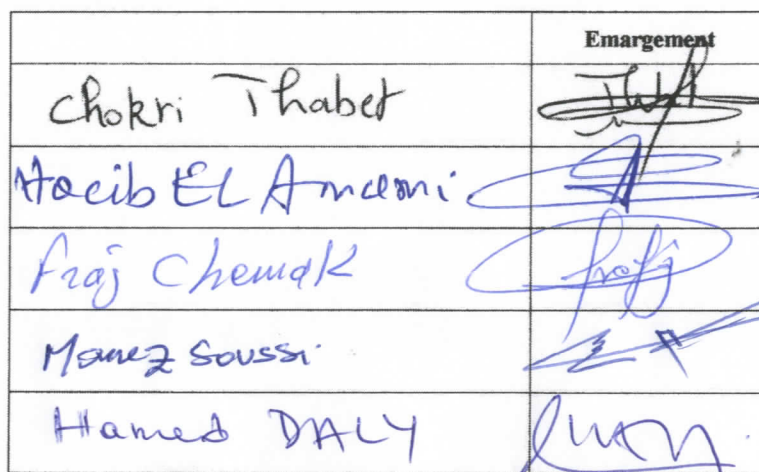 Emargement
Chokri Thabet
Hacib EL Amami
Fraj Chemak
Moez Soussi
Hamed DALY